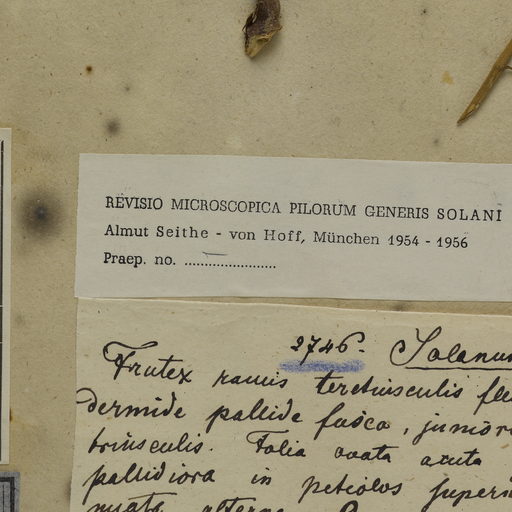 REVISIO MICROSCOPICA PILORUM GENERIS SOLANI
Almut Seithe - von Hoff, München 1954 - 1956
Praep. no. ........................
2746. Solanum
Frutex ramis teretiusculis
dermide pallide fusca, junior
briusculis. Folia ovata acuta
pallidiora in petiolos super
alterna